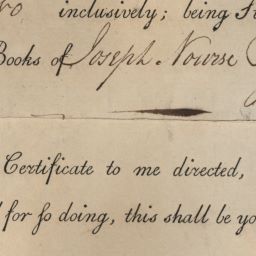 inclusively; being
Books of Joseph Nourse
Certificate to me directed,
for ſo doing, this shall be